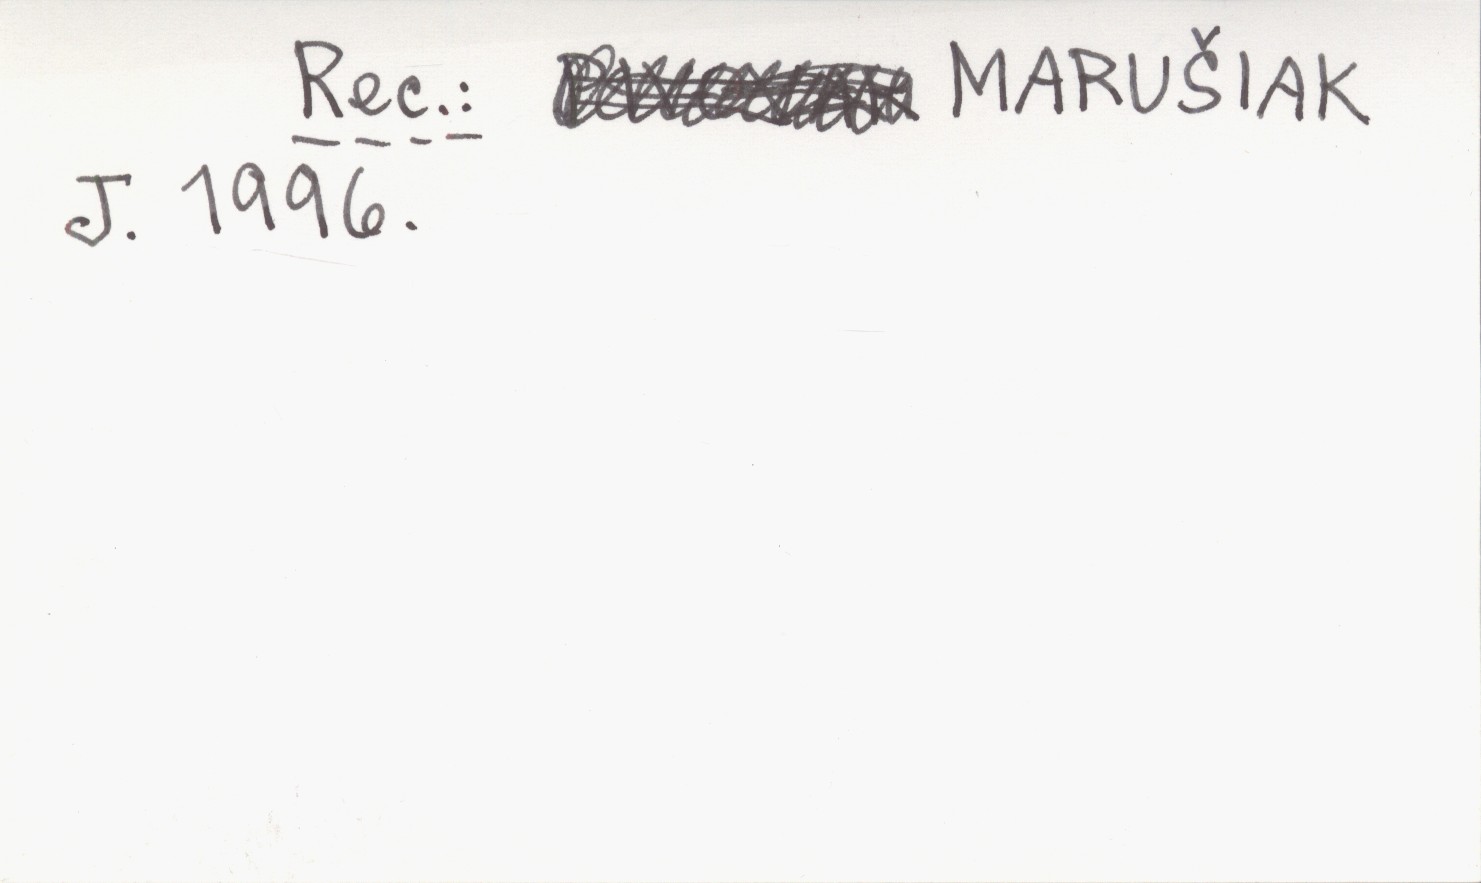 Rec.: MARUŠIAK
J. 1996.